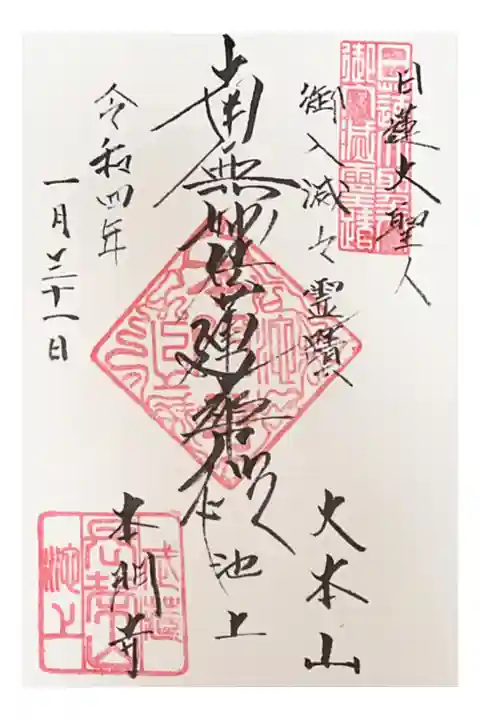 日蓮大聖人
御入滅之霊蹟
大本山
南無妙法蓮華経
池上
本門寺
令和四年
一月三十一日